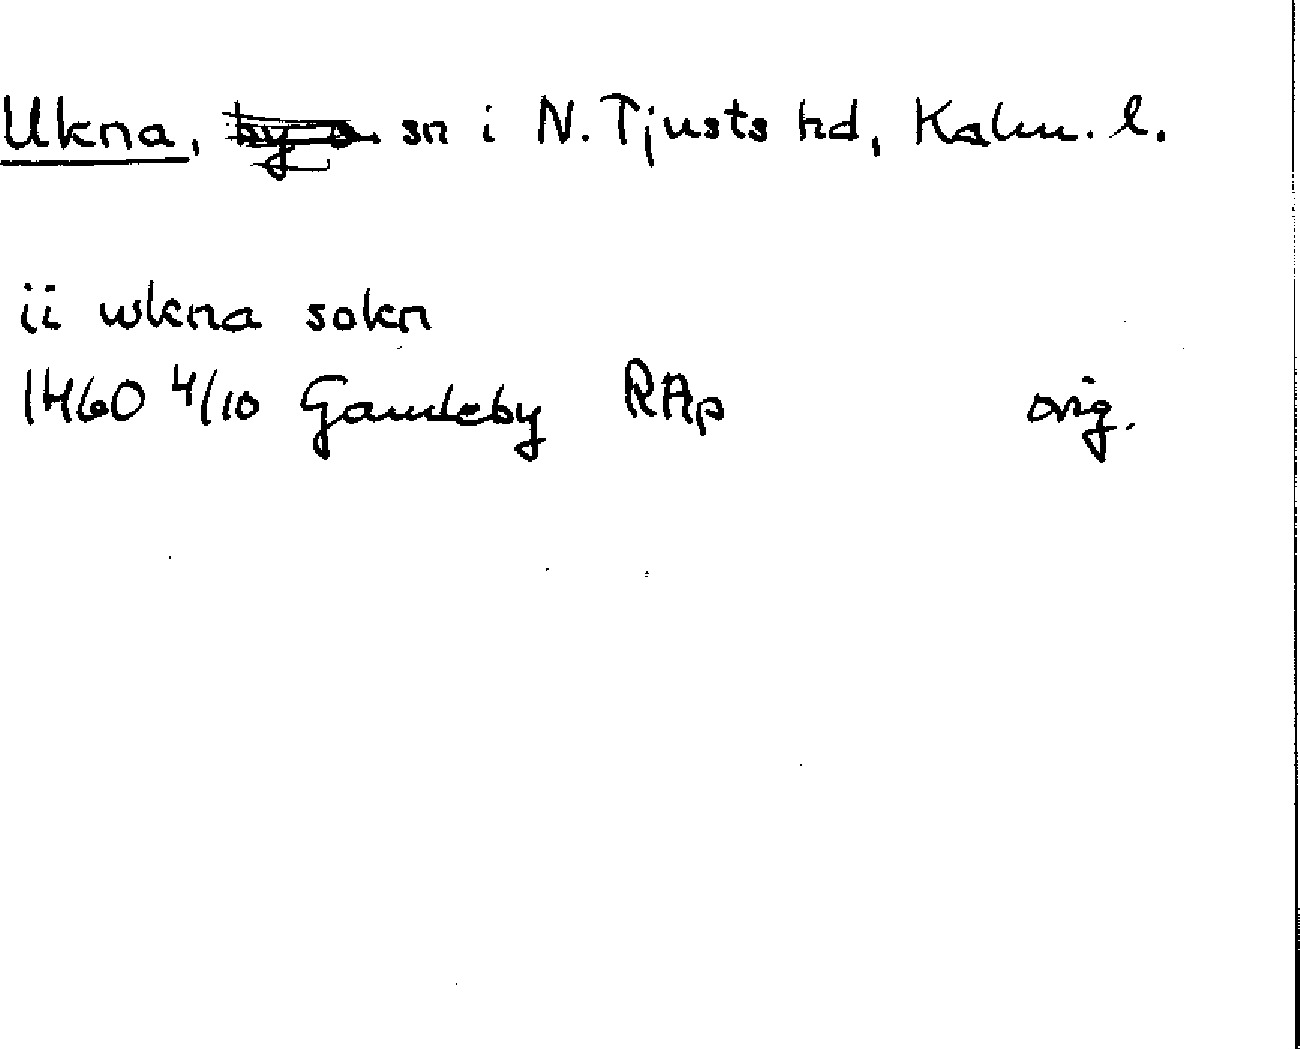 Ukna, sn i N. Tjusts hd, Kalm. l.
ii wkna sokn
1460 4/10 Gamleby RAp orig.